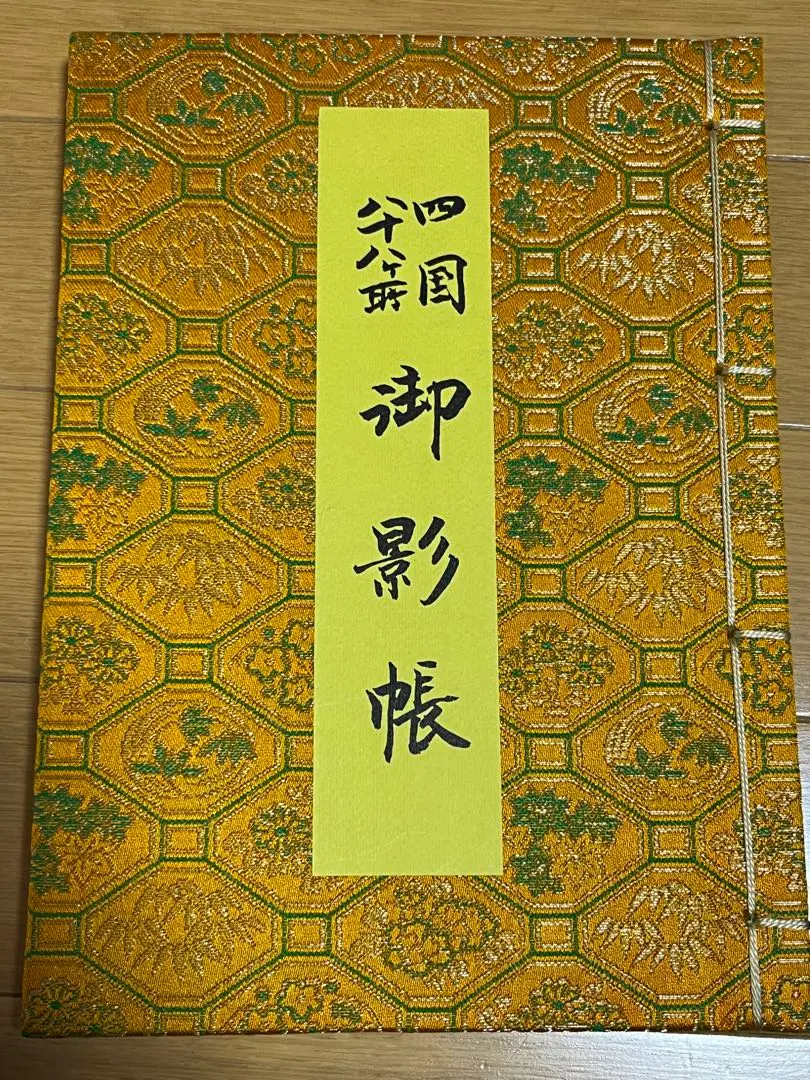 四国
八十八ヶ所
御影帳